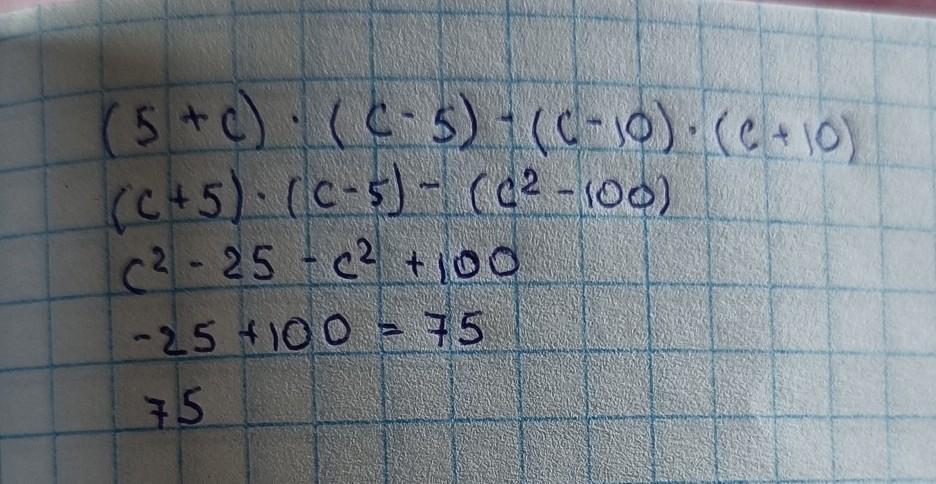 (5 + c) · (c - 5) - (c - 10) · (c + 10)
(c + 5) · (c - 5) - (c² - 100)
c² - 25 - c² + 100
-25 + 100 = 75
75